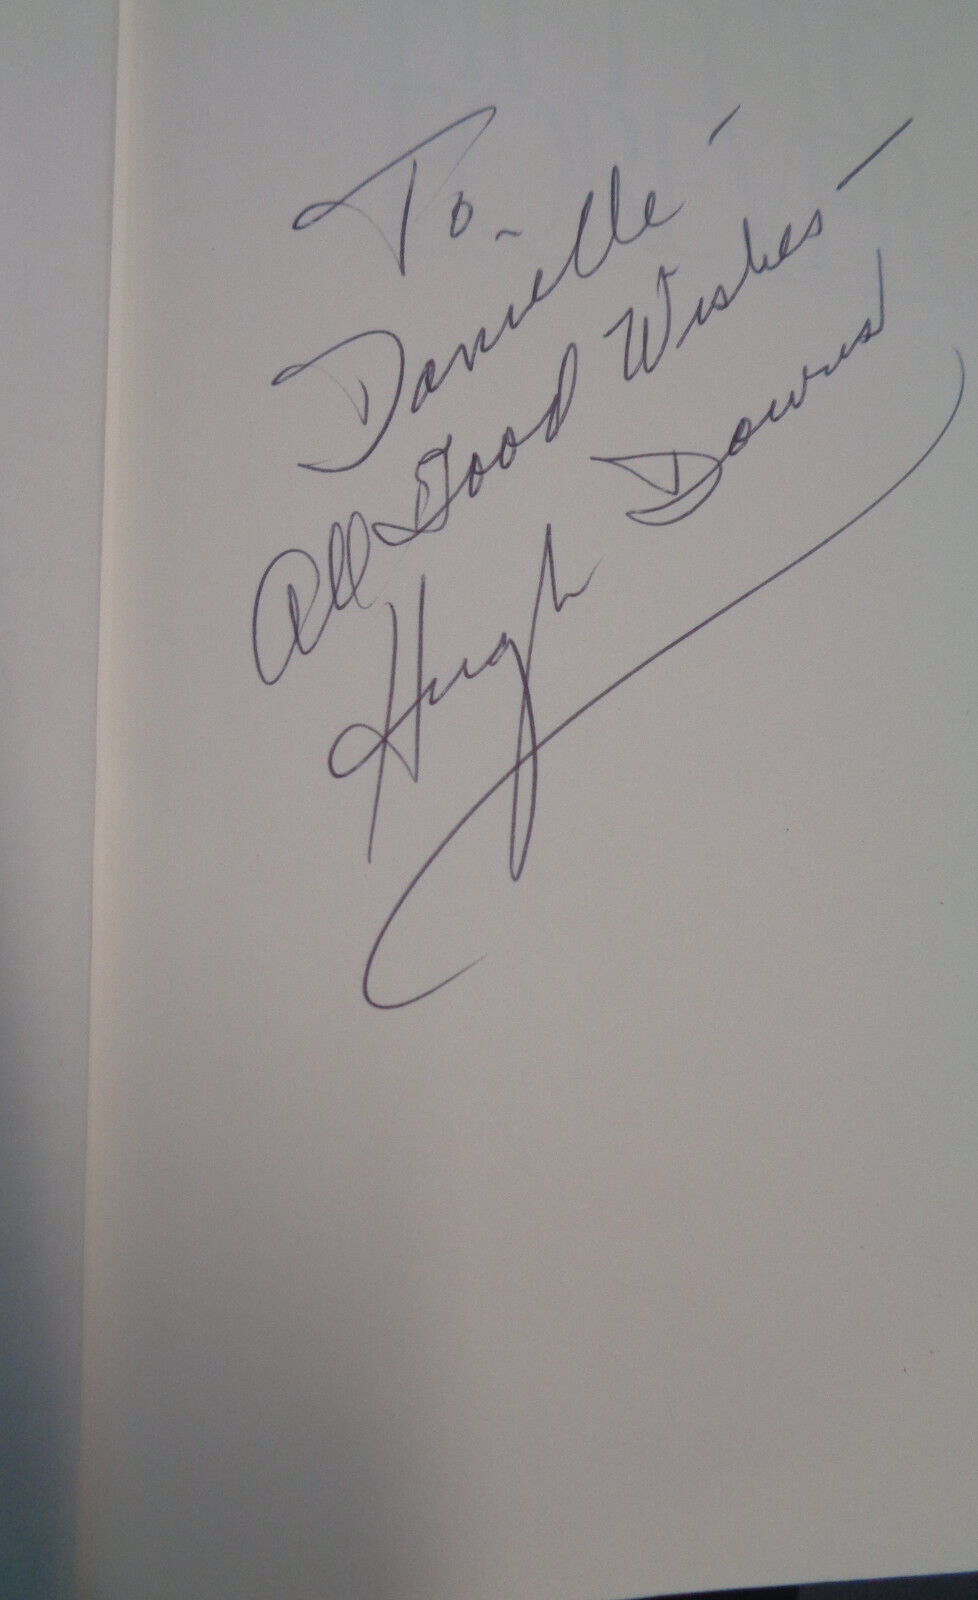 To -
Danielle -
All Good Wishes -
Hugh Downs